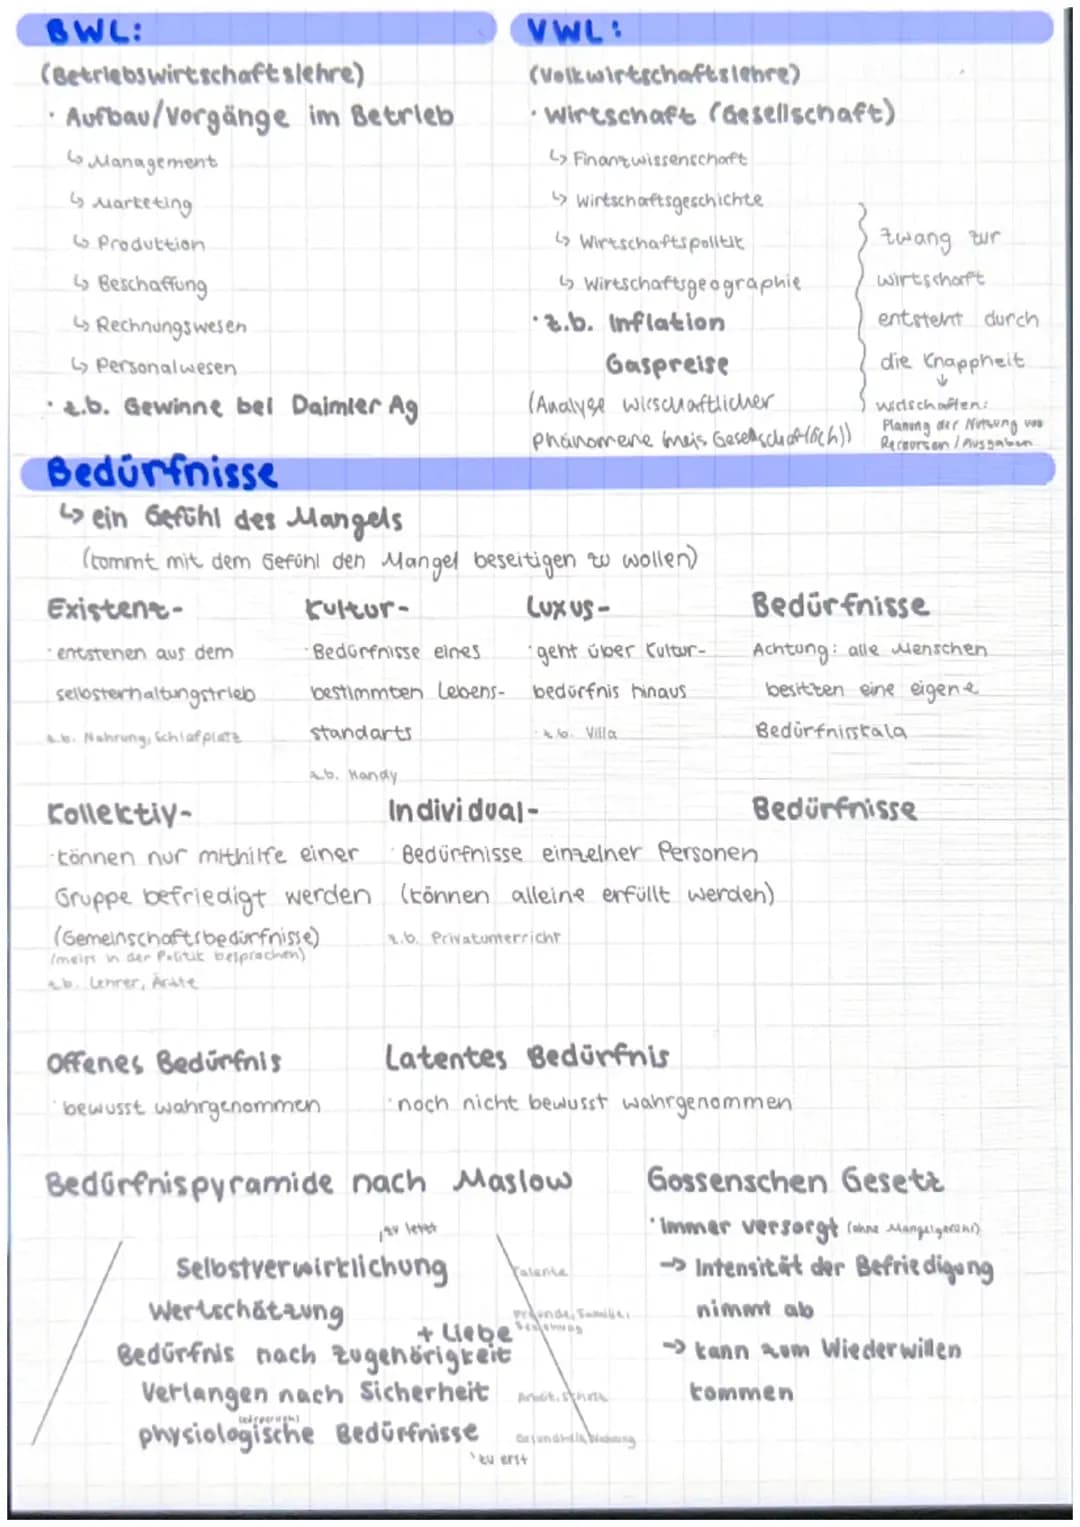 BWL:
(Betriebswirtschaftslehre)
· Aufbau/Vorgänge im Betrieb
↳ Management
↳ Marketing
↳ Produktion
↳ Beschaffung
↳ Rechnungswesen
↳ Personalwesen
· z.b. Gewinne bei Daimler Ag
VWL:
(Volkwirtschaftslehre)
· Wirtschaft (Gesellschaft)
↳ Finanzwissenschaft
↳ Wirtschaftsgeschichte
↳ Wirtschaftspolitik
↳ Wirtschaftsgeographie
· z.b. Inflation
Gaspreise
(Analyse wirschaftlicher
phänomene (meis Gesellschaftlich))
Zwang zur
wirtschaft
entsteht durch
die Knappheit
↓
widschaften:
Planung der Nutzung von
Recoursen / Ausgaben
Bedürfnisse
↳ ein Gefühl des Mangels
(kommt mit dem Gefühl den Mangel beseitigen zu wollen)
Existenz- Kultur- Luxus- Bedürfnisse
· entstehen aus dem
selbsterhaltungstrieb
z.b. Nahrung, Schlafplatz
· Bedürfnisse eines
bestimmten Lebens-
standarts
z.b. Handy
· geht über Kultur-
bedürfnis hinaus
z.b. Villa
Achtung: alle Menschen
besitzen eine eigene
Bedürfnisskala
Kollektiv- Individual- Bedürfnisse
· können nur mithilfe einer
Gruppe befriedigt werden
(Gemeinschaftsbedürfnisse)
(meist in der Politik besprochen)
z.b. Lehrer, Ärzte
· Bedürfnisse einzelner Personen
(können alleine erfüllt werden)
z.b. Privatunterricht
Offenes Bedürfnis
· bewusst wahrgenommen
Latentes Bedürfnis
· noch nicht bewusst wahrgenommen
Bedürfnispyramide nach Maslow
zu letzt
Selbstverwirklichung Talente
Wertschätzung
Freunde, Familie,
Beziehung
+ Liebe
Bedürfnis nach Zugehörigkeit
Verlangen nach Sicherheit
(körperlich)
physiologische Bedürfnisse
zu erst
Gossenschen Gesetz
· immer versorgt (ohne Mangelgefühl)
→ Intensität der Befriedigung
nimmt ab
→ kann zum Wiederwillen
kommen